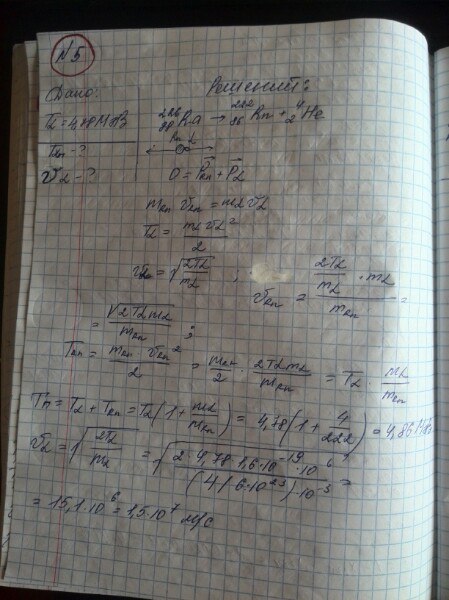 N5
Дано: Решение:
Tα = 4,78 МэВ ²²⁶₈₈Ra → ²²²₈₆Rn + ⁴₂He
TRn - ? Rn α
vα - ? 0 = P⃗Rn + P⃗α
mRn vRn = mα vα
Tα = mα vα² / 2
vα = √(2Tα / mα) ; vRn = (2Tα / mα · mα) / mRn =
= √(2Tα mα) / mRn ;
TRn = mRn · vRn² / 2 = mRn / 2 · 2Tα mα / mRn = Tα · mα / mRn
Tп = Tα + TRn = Tα (1 + mα / mRn) = 4,78 (1 + 4 / 222) = 4,86 МэВ
vα = √(2Tα / mα) = √(2 · 4,78 · 1,6 · 10⁻¹⁹ · 10⁶ / ((4 / 6 · 10²³) · 10⁻³)) =
= 15,1 · 10⁶ = 1,5 · 10⁷ м/с